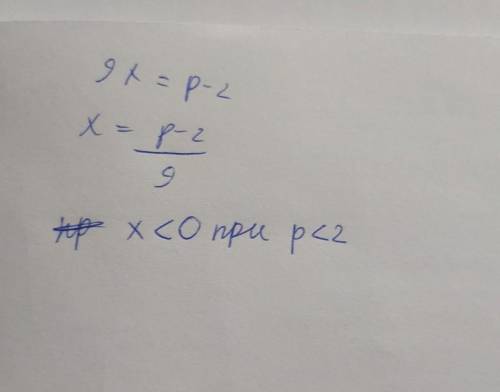 9x = p-2
x = p-2/9
x<0 при p<2